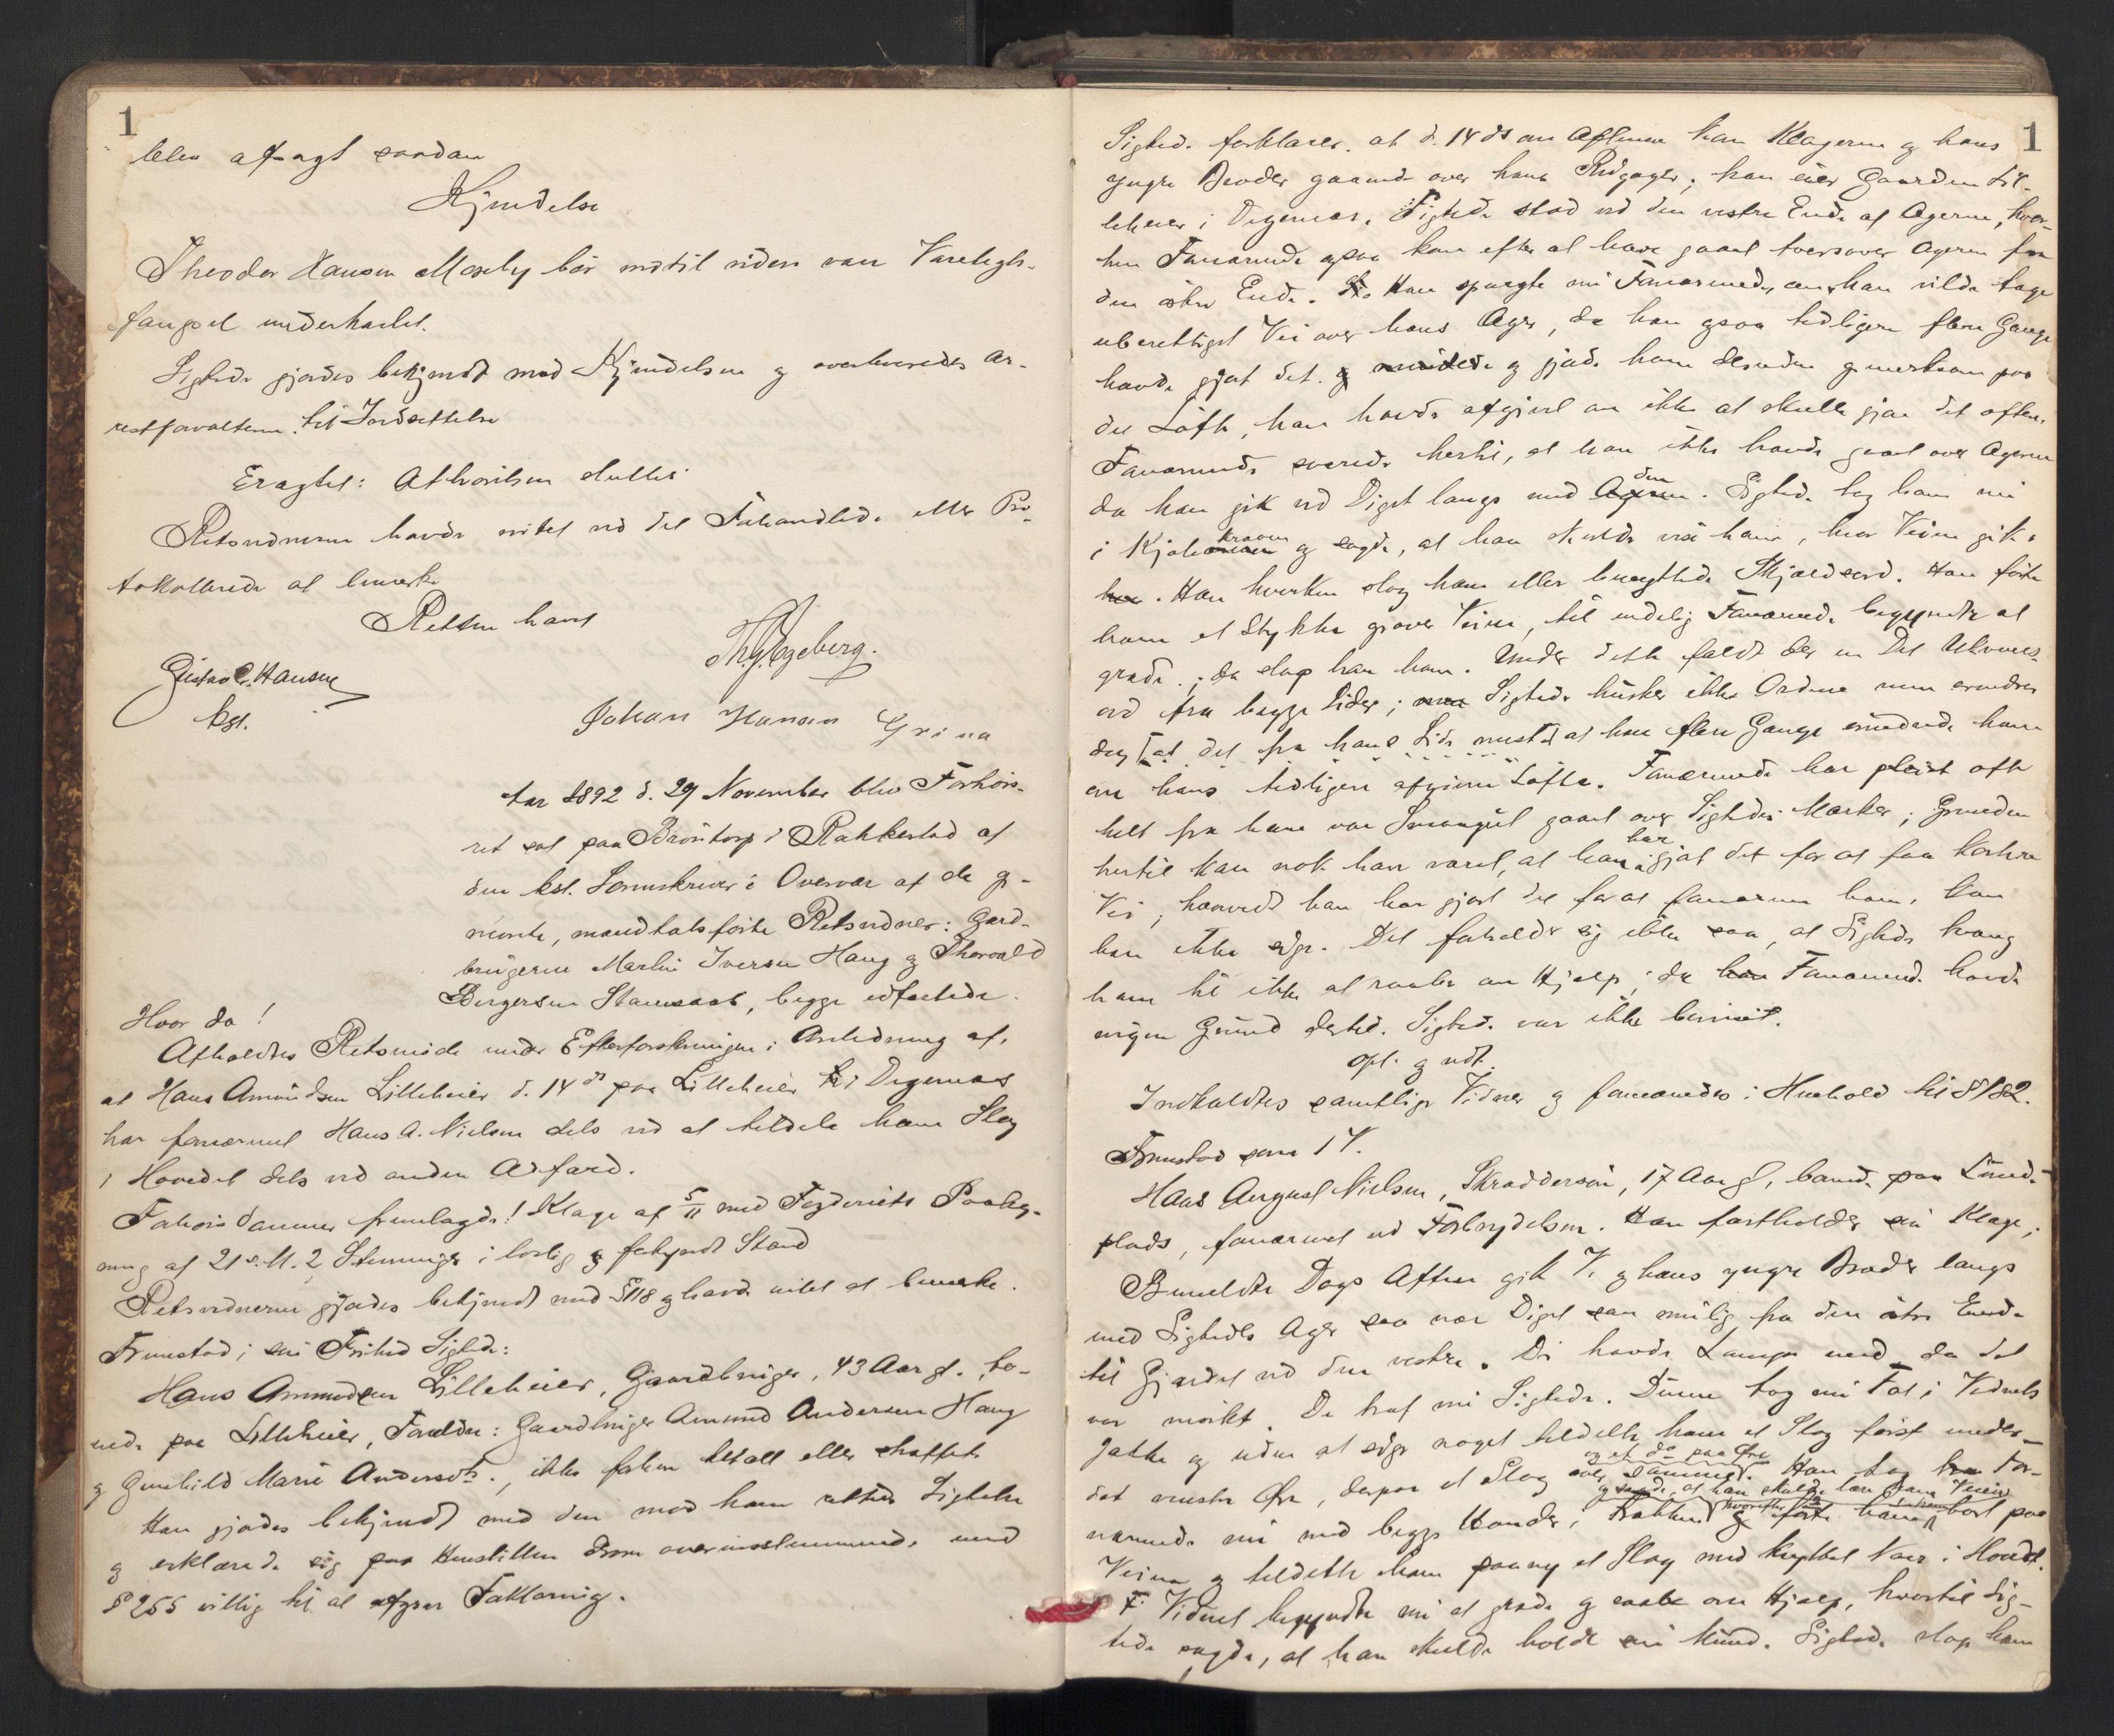 1
blev afsagt saadan
Kjendelse
Theodor Hansen Moseby bör indtil videre være Varetægts-
fængsel underkastet.
Sigtede gjordes bekjendt med Kjendelsen og overleveredes Ar-
restforvalteren til Indsættelse
Eragtet: Afhörelsen sluttet
Retsvidnerne havde intet ved det Forhandlede eller Pro-
tokollerede at bemærke
Retten hævet
Th. J. Egeberg.
Gustav C. Hansen
kst.
Johan Hansen Grina
Aar 1892 d. 29 November blev Forhörs-
ret sat paa Bröntorp i Rakkestad af
den kst. Sorenskriver i Overvær af de op-
nævnte, mandtalsförte Retsvidner: Gaard-
brugerne Martin Iversen Haug og Thorvald
Birgersen Stamsaas, begge edfæstede.
Hvor da!
Afholdtes Retsmöde under Efterforskningen i Anledning af,
at Hans Amundsen Lilleheier d. 14 ds paa Lilleheier i Degernæs
har fornærmet Hans A. Nielsen dels ved at tildele ham Slag
i Hovedet dels ved anden Adfærd.
Forhörsdommeren fremlagde: Klage af 5/11 med Fogderiets Paateg-
ning af 21 s. M. 2, Stevninger i lovlig forkyndt Stand
Retsvidnerne gjordes bekjendt med §118 og havde intet at bemærke.
Fremstod i sin Frihed Sigtede:
Hans Amundsen Lilleheier, Gaardbruger, 43 Aar gl., bo-
ende paa Lilleheier, Forældre: Gaardbruger Amund Andersen Haug
og Gunhild Marie Andersdt., ikke forhen tiltalt eller straffet
Han gjordes bekjendt med den mod ham rettede Sigtelse
og erklærede sig paa Henstillen overensstemmende med
§ 255 villig til at afgive Forklaring.
1
Sigtede forklarer, at d. 14 ds om Aftenen kom Klageren og hans
yngre Broder gaaende over hans Rugager; han eier Gaarden Lil-
leheier i Degernæs. Sigtede stod ved den vestre Ende af Ageren, hvor-
hen Fornærmede ogsaa kom efter at have gaaet tversover Ageren fra
den östre Ende. Han spurgte nu Fornærmede, om han vilde tage
uberettiget Vei over hans Ager, da han ogsaa tidligere flere Gange
havde gjort det og gjorde ham desuden opmerksom paa
det Löfte, han havde afgivet om ikke at skulle gjøre det oftere.
Fornærmede svarede hertil, at han ikke havde gaaet over Ageren
da han gik ved Diget langs med den. Sigtede tog ham nu
i Kjolekraven og sagde, at han skulde vise ham, hvor Veien gik.
Han hverken slog ham eller benyttede Skjældsord. Han förte
ham et Stykke opover Veien, til endelig Fornærmede begyndte at
græde; da slap han ham. Under dette faldt der en Del Ukvems-
ord fra begge Sider; Sigtede husker ikke Ordene men erindrer
dog at det fra hans Side nust at han flere Gange erindrede ham
om hans tidligere afgivne Löfte. Fornærmede har pleiet ofte
helt fra han var Smaagut gaaet over Sigtedes Marker; Grunden
hertil kan nok have været, at han har gjort det for at faa kortere
Vei; hvorvidt han har gjort det for at fornærme ham, kan
han ikke sige. Det forholder sig ikke saa, at Sigtede tvang
ham til ikke at raabe om Hjelp; da Fornærmede havde
ingen Grund dertil. Sigtede var ikke beruset.
opl. og vedt.
Indkaldtes samtlige Vidner og formanedes i Henhold til § 182.
Fremstod som 1 V.
Hans August Nielsen, Skræddersön, 17 Aar gl, boende paa Lunde-
plads, fornærmet ved Forbrydelsen. Han fastholder sin Klage;
Bemeldte Dags Aften gik V. og hans yngre Broder langs
med Sigtedes Ager saa nær Diget som mulig fra den östre Ende
til Gjærdet ved den vestre. De havde Lampe med, da det
var mörkt. De traf nu Sigtede. Denne tog nu Fat i Vidnets
Jakke og uden at sige noget tildelte ham et Slag först under
det venstre Öre, derpaa et Slag og et da paa Öre. Han tog For-
nærmede nu med begge Hænder i Frakken og sagde, at han skulde lære ham Veien hvorefter han förte ham bort paa
Veien og tildelte ham paany et Slag med knyttet Næve i Hovdt.
Vidnet begyndte nu at græde og raabe om Hjelp, hvortil Sig-
tede sagde, at han skulde holde sin Mund. Sigtede slap ham